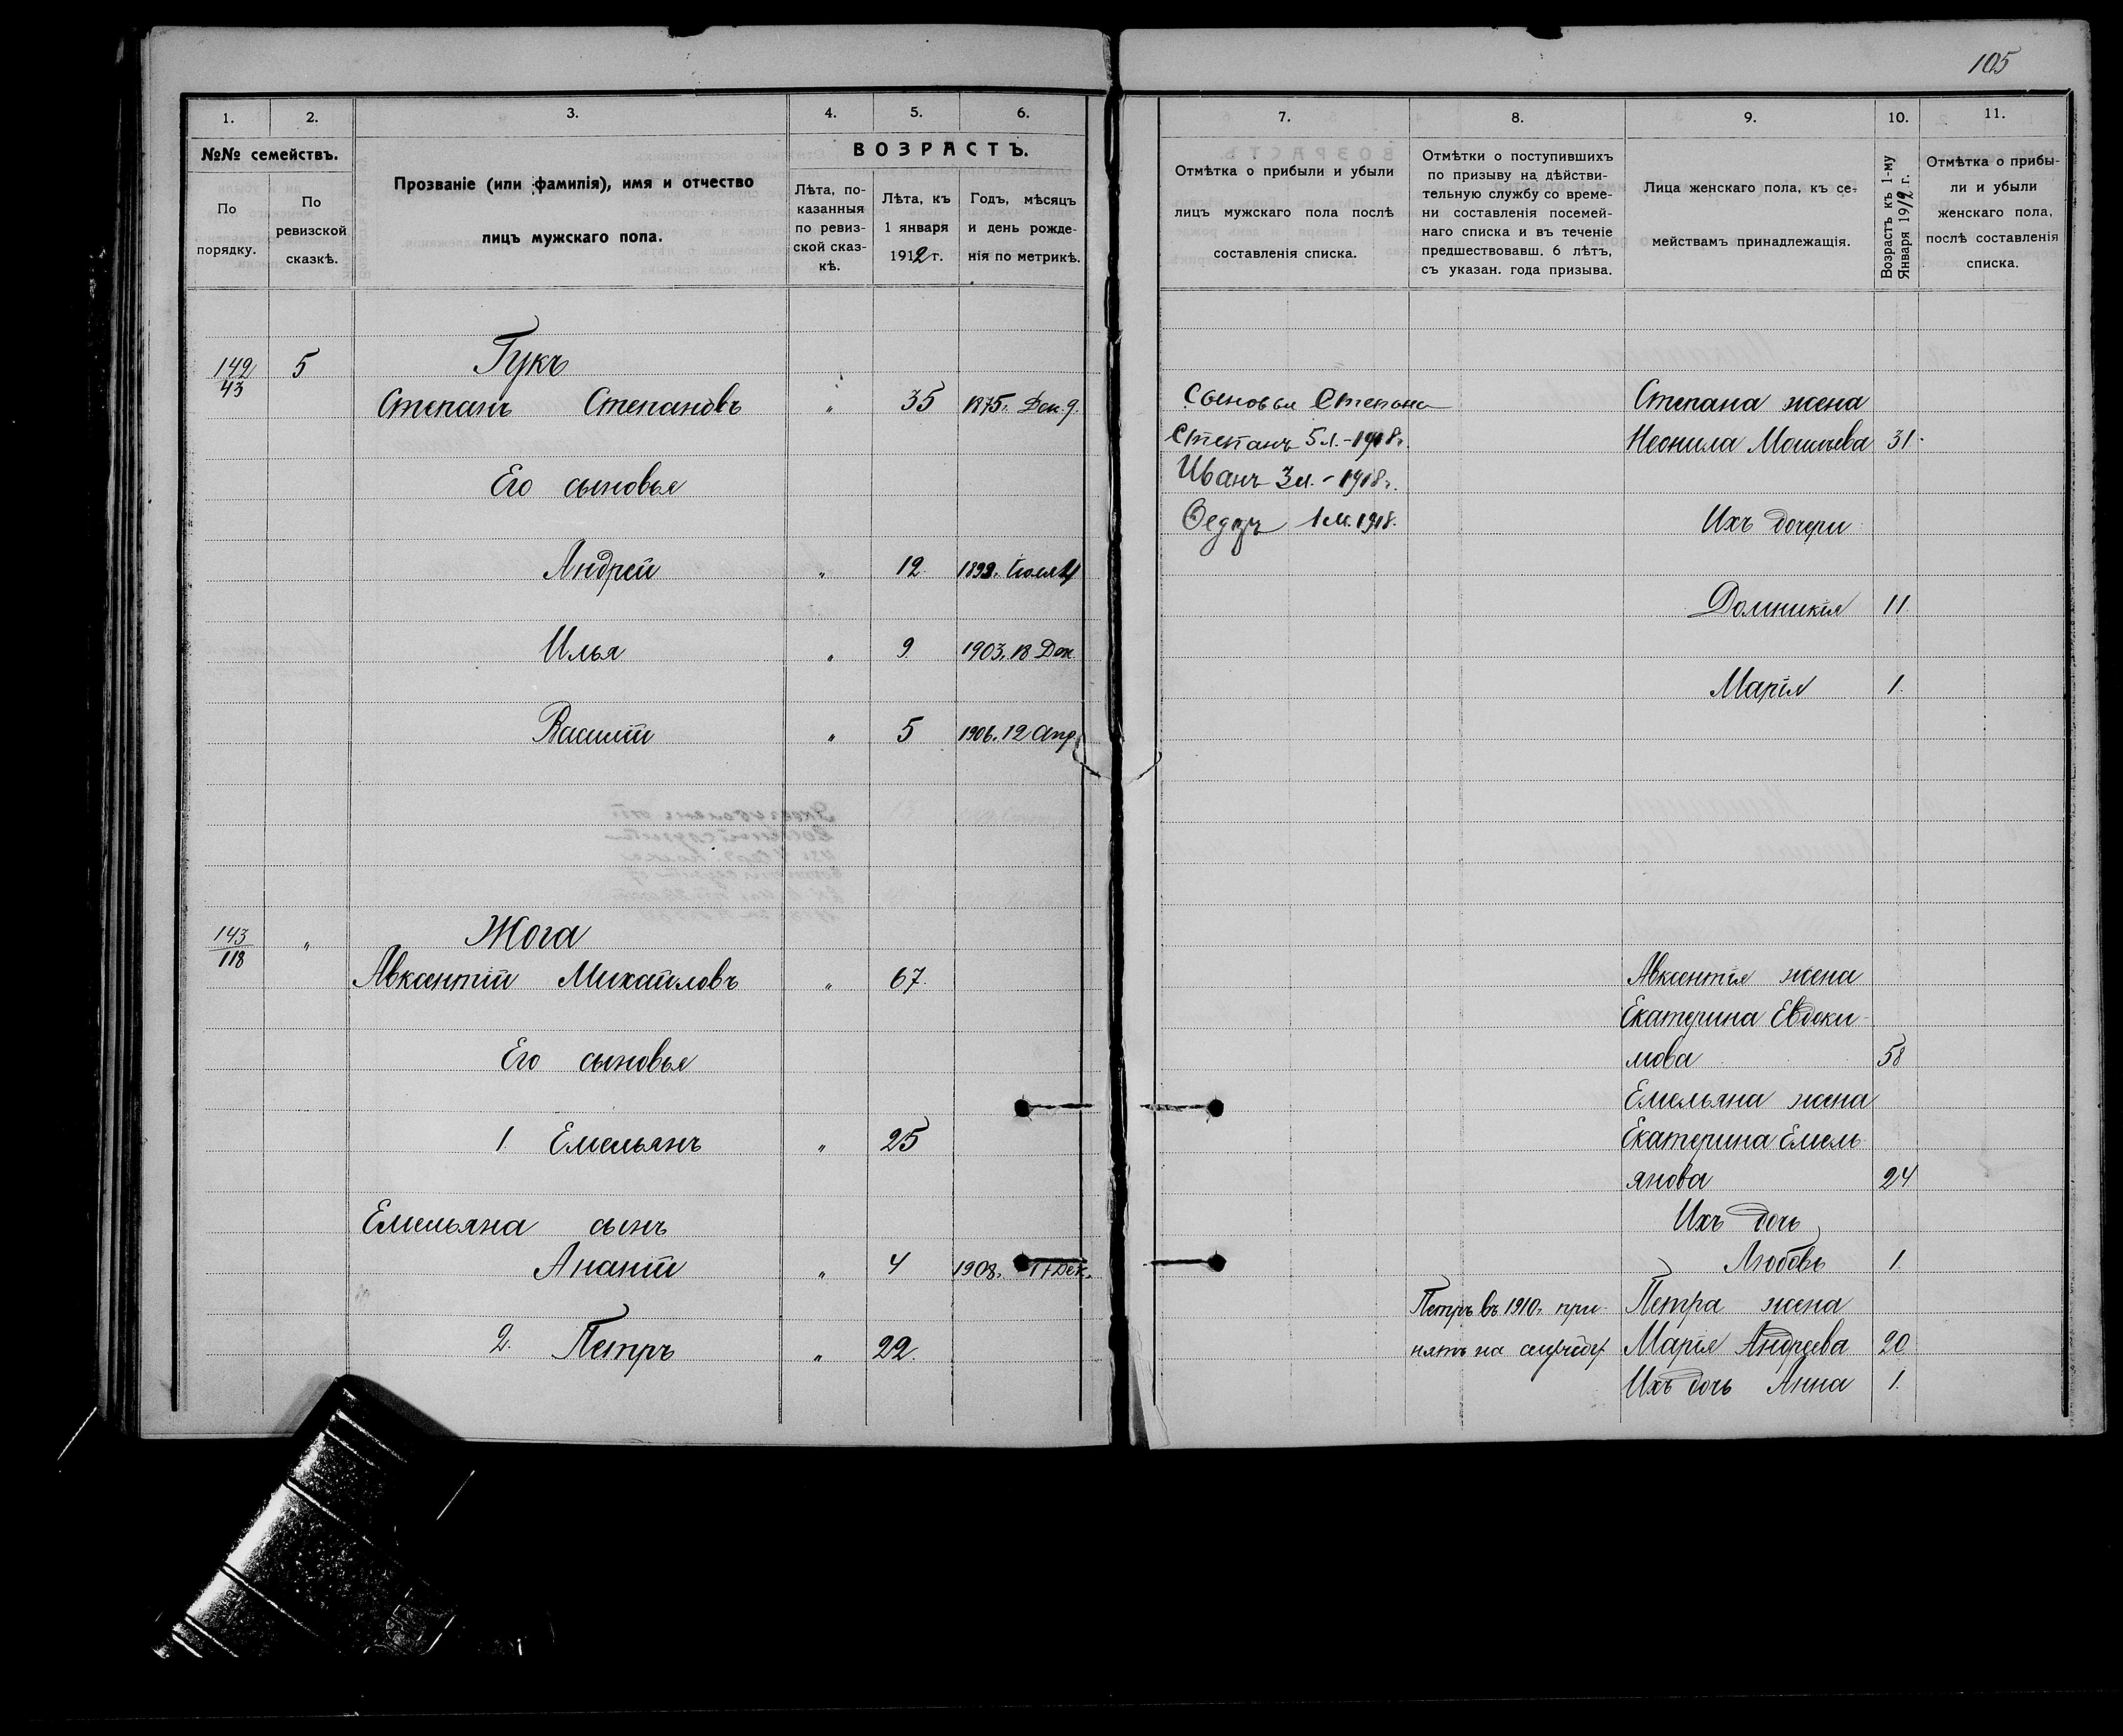 105
1.
2.
3.
4.
5.
6.
№№ семействъ.
По порядку.
По ревизской сказкѣ.
Прозваніе (или фамилія), имя и отчество
лицъ мужскаго пола.
ВОЗРАСТЪ.
Лѣта, по-
казанныя
по ревиз-
ской сказ-
кѣ.
Лѣта, къ
1 января
1912 г.
Годъ, мѣсяцъ
и день рожде-
нія по метрикѣ.
142
43
5
Гукъ
Степанъ Степановъ " 35 1875г. Дек. 9.
Его сыновья
Андрей " 12. 1899г. Іюля
Илья " 9. 1903г. 18 Дек.
Василій " 5 1906г. 12 Апр.
143
118
"
Жога
Авксентій Михайловъ " 67.
Его сыновья
1. Емельянъ " 25
Емельяна сынъ
Ананій " 4 1908г. 17 Дек.
2. Петръ " 22.
7.
8.
9.
10.
11.
Отмѣтка о прибыли и убыли
лицъ мужскаго пола послѣ
составленія списка.
Отмѣтки о поступившихъ
по призыву на дѣйстви-
тельную службу со време-
ни составленія посемей-
наго списка и въ теченіе
предшествовавш. 6 лѣтъ,
съ указан. года призыва.
Лица женскаго пола, къ се-
мействамъ принадлежащія.
Возрастъ къ 1-му
Января 1912 г.
Отмѣтка о прибы-
ли и убыли
женскаго пола,
послѣ составленія
списка.
Сыновья Степана
Степанъ 5 л. - 1918г.
Иванъ 3 л. - 1918г.
Ѳедоръ 1 м. 1918.
Степана жена
Неонила Моисеева 31.
Ихъ дочери
Домникія 11.
Марія 1.
Авксентія жена
Екатерина Евдоки-
мова 58
Емельяна жена
Екатерина Емель-
янова 24
Ихъ дочь
Любовь 1
Петръ въ 1910г. при-
нятъ на службу
Петра жена
Марія Андреева 20
Ихъ дочь Анна 1.